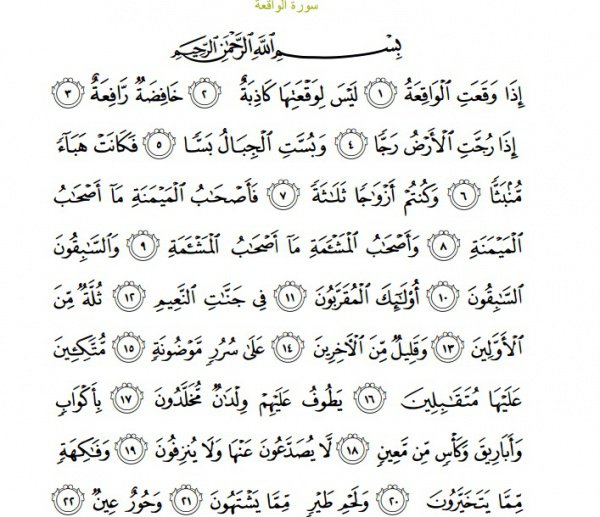 سورة الواقعة
بِسْمِ اللَّهِ الرَّحْمَٰنِ الرَّحِيمِ
إِذَا وَقَعَتِ ٱلْوَاقِعَةُ ١ لَيْسَ لِوَقْعَتِهَا كَاذِبَةٌ ٢ خَافِضَةٌ رَّافِعَةٌ ٣
إِذَا رُجَّتِ ٱلْأَرْضُ رَجًّا ٤ وَبُسَّتِ ٱلْجِبَالُ بَسًّا ٥ فَكَانَتْ هَبَآءً
مُّنۢبَثًّا ٦ وَكُنتُمْ أَزْوَٰجًا ثَلَٰثَةً ٧ فَأَصْحَٰبُ ٱلْمَيْمَنَةِ مَآ أَصْحَٰبُ
ٱلْمَيْمَنَةِ ٨ وَأَصْحَٰبُ ٱلْمَشْـَٔمَةِ مَآ أَصْحَٰبُ ٱلْمَشْـَٔمَةِ ٩ وَٱلسَّٰبِقُونَ
ٱلسَّٰبِقُونَ ١٠ أُو۟لَٰٓئِكَ ٱلْمُقَرَّبُونَ ١١ فِى جَنَّٰتِ ٱلنَّعِيمِ ١٢ ثُلَّةٌ مِّنَ
ٱلْأَوَّلِينَ ١٣ وَقَلِيلٌ مِّنَ ٱلْءَاخِرِينَ ١٤ عَلَىٰ سُرُرٍ مَّوْضُونَةٍ ١٥ مُّتَّكِـِٔينَ
عَلَيْهَا مُتَقَٰبِلِينَ ١٦ يَطُوفُ عَلَيْهِمْ وِلْدَٰنٌ مُّخَلَّدُونَ ١٧ بِأَكْوَابٍ
وَأَبَارِيقَ وَكَأْسٍ مِّن مَّعِينٍ ١٨ لَّا يُصَدَّعُونَ عَنْهَا وَلَا يُنزِفُونَ ١٩ وَفَٰكِهَةٍ
مِّمَّا يَتَخَيَّرُونَ ٢٠ وَلَحْمِ طَيْرٍ مِّمَّا يَشْتَهُونَ ٢١ وَحُورٌ عِينٌ ٢٢